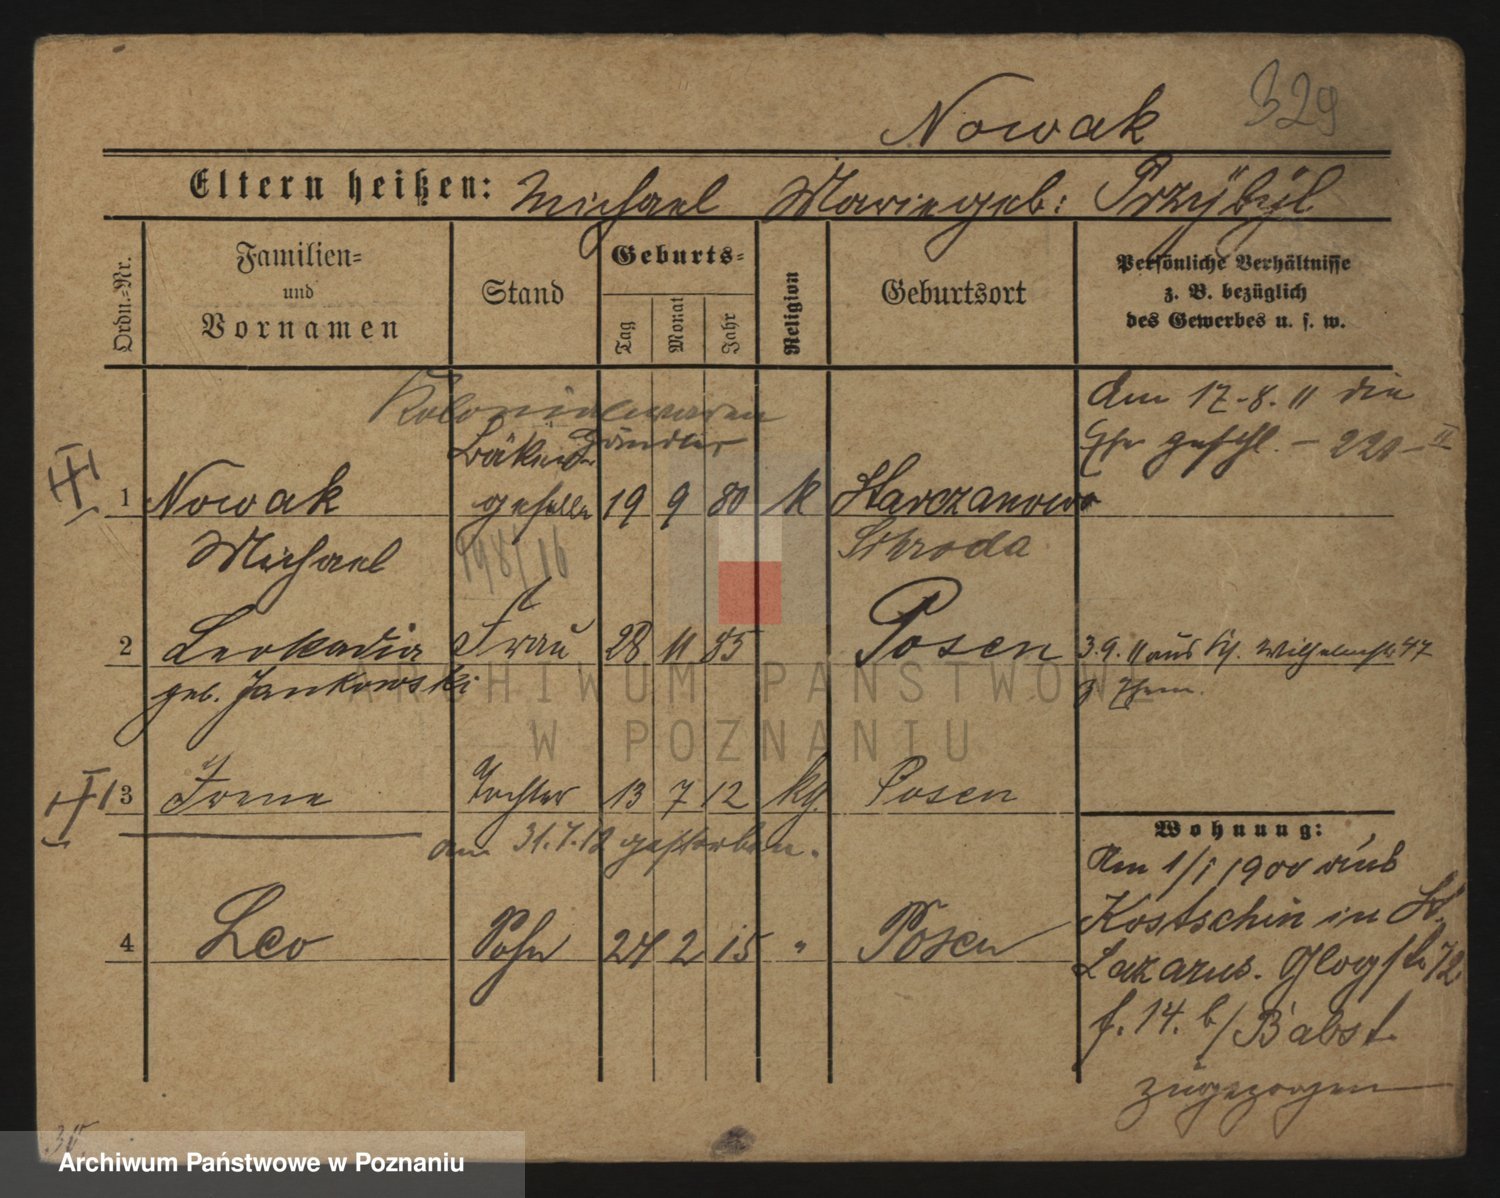 Nowak 329
Eltern heißen: Michael Marie geb: Przÿbÿl
Ordn.-Nr.
Familien- und Vornamen
Stand
Geburts-
Tag
Monat
Jahr
Religion
Geburtsort
Persönliche Verhältnisse
z. B. bezüglich
des Gewerbes u. s. w.
Kolonialwaren
händler
Am 17.8.11 die
Ehe geschl. – 220 – II
Bäcker
1 Nowak geselle 19 9 80 k Starczanowo
Michael 198/16 Schroda
2 Leokadia Frau 28 11 85 Posen 3.9.11 aus Wilhelmstr. 47
geb. Jankowski
3 Irene Tochter 13 7 12 kg. Posen
am 31.7.12 gestorben.
Wohnung:
Am 1/1 1900 aus
Kostschin in St.
4 Leo Sohn 24 2 15 " Posen
Lazarus. Glogstr. 72
f. 14. b/ Babst.
zugezogen
ARCHIWUM PAŃSTWOWE
W POZNANIU
Archiwum Państwowe w Poznaniu